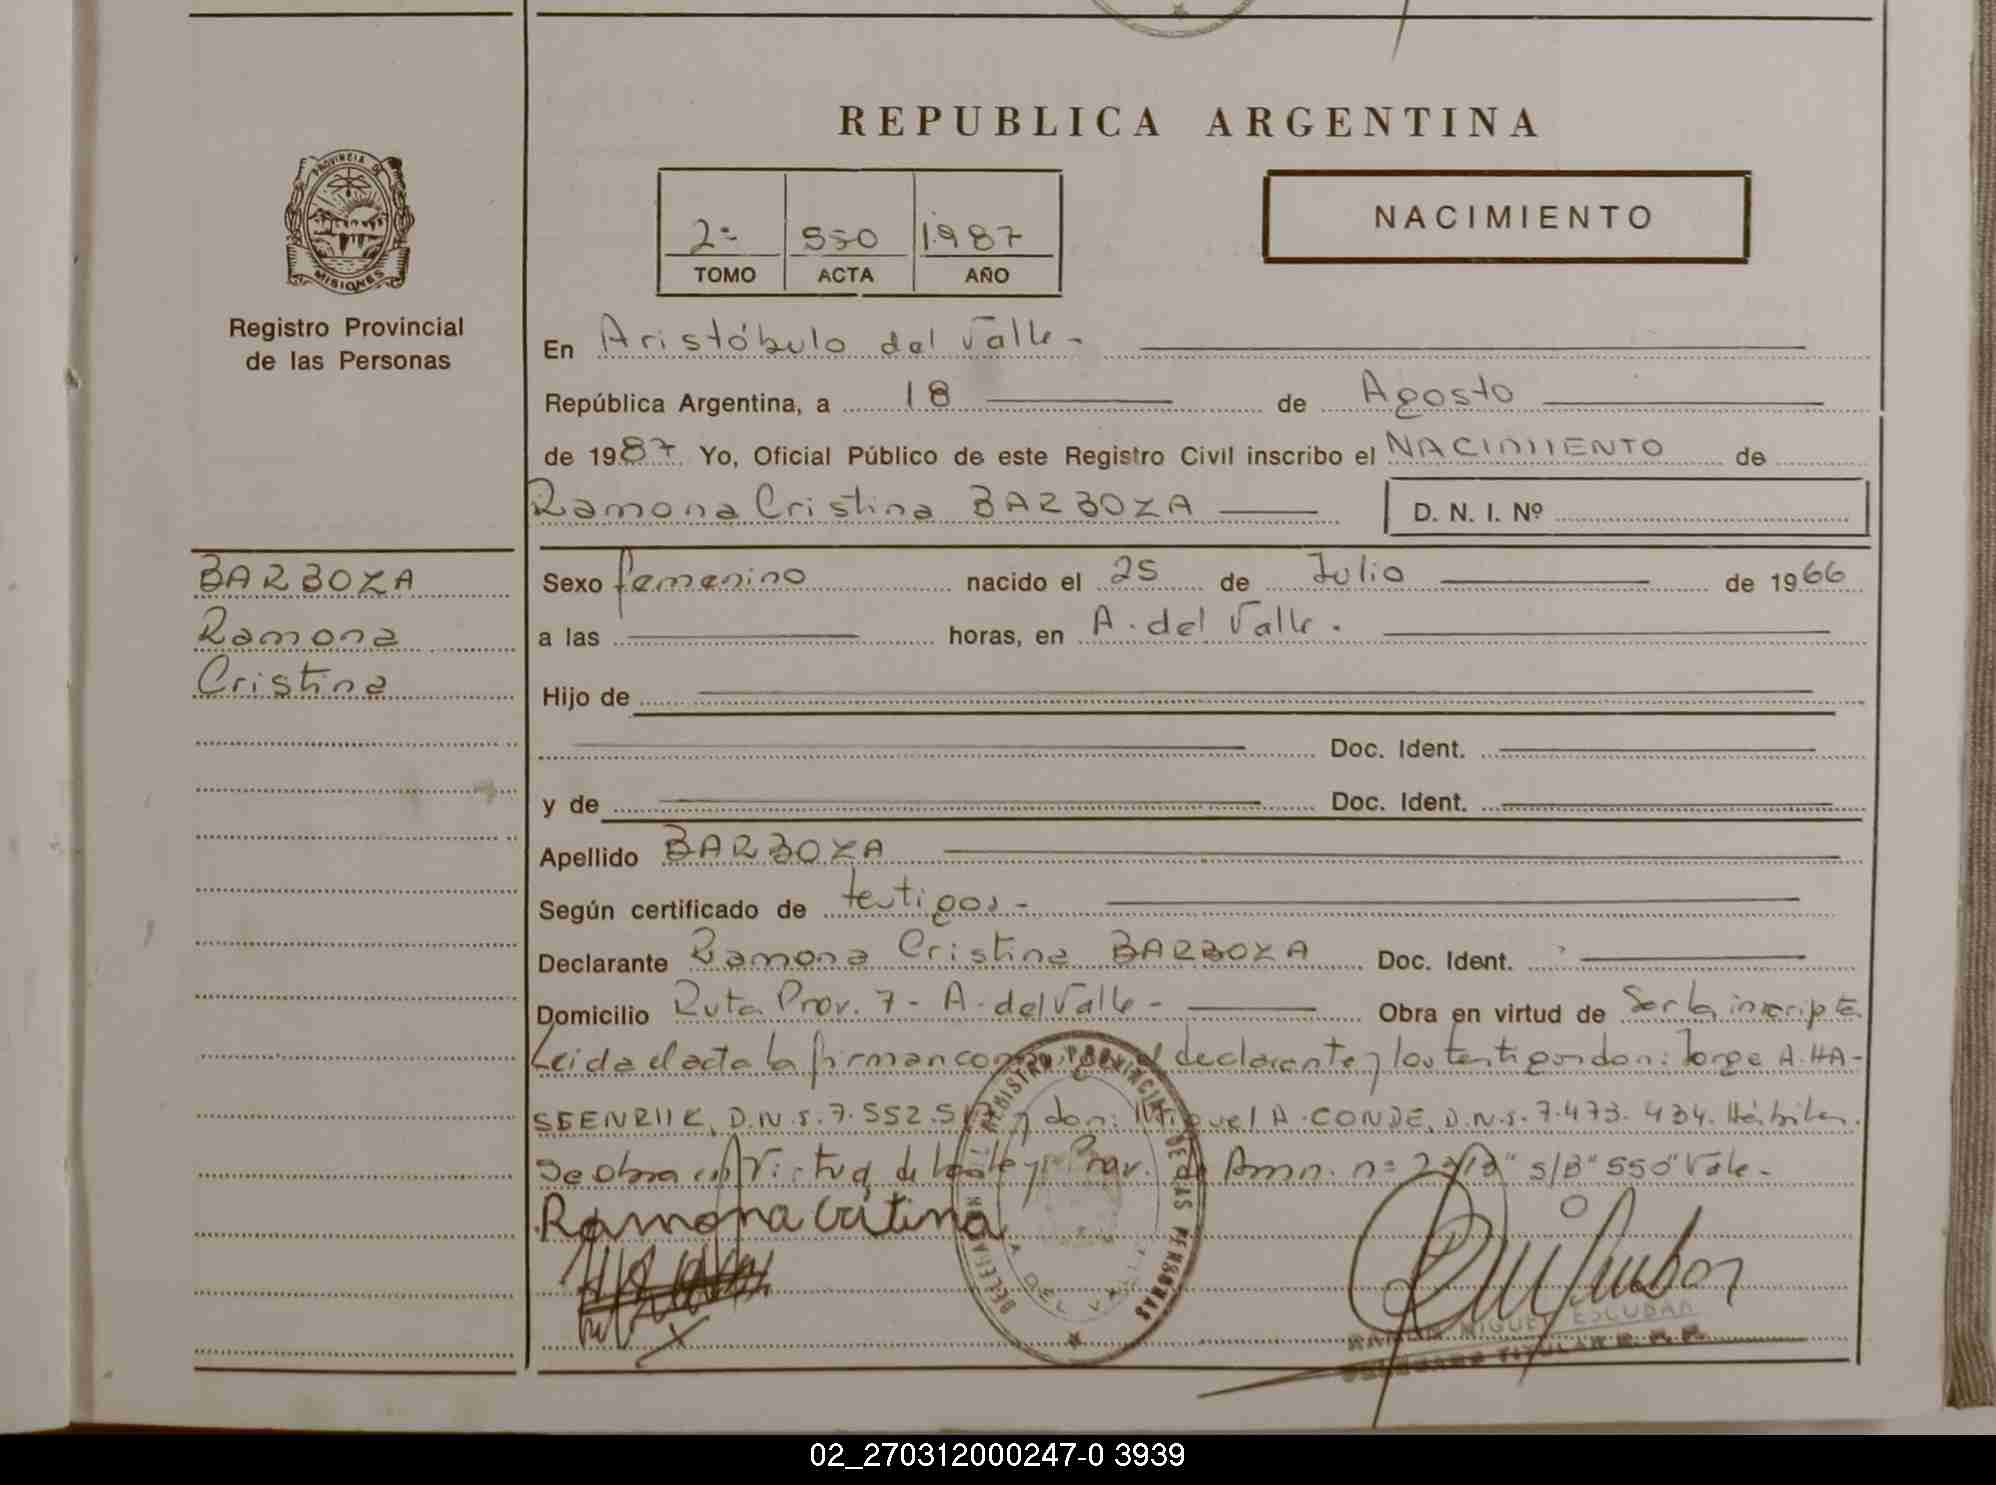 REPUBLICA ARGENTINA
PROVINCIA DE
MISIONES
Registro Provincial
de las Personas
2º 550 1987
TOMO ACTA AÑO
NACIMIENTO
En Aristóbulo del Valle -
República Argentina, a 18 de Agosto
de 1987 Yo, Oficial Público de este Registro Civil inscribo el NACIMIENTO de
Ramona Cristina BARBOZA D. N. I. Nº
BARBOZA
Ramona
Cristina
Sexo femenino nacido el 25 de Julio de 1966
a las horas, en A. del Valle.
Hijo de
Doc. Ident.
y de Doc. Ident.
Apellido BARBOZA
Según certificado de testigos -
Declarante Ramona Cristina BARBOZA Doc. Ident.
Domicilio Ruta Prov. 7 - A. del Valle - Obra en virtud de Ser la inscripta
Leida el acta la firman conmigo el declarante y los testigos don: Jorge A. HA-
SEENRIIK, D.N.I. 7.552. y don: Miguel A. CONDE, D.N.I. 7.473.434. Hábiles.
Se obra en Virtud de la ley Prov. de Amn. nº s/B "550" Vale -
Ramona Critina
REGISTRO PROVINCIAL DE LAS PERSONAS
DELEGACION
A DEL VALLE
RAMON MIGUEL ESCOBAR
TITULAR R. P. P.
02_270312000247-0 3939